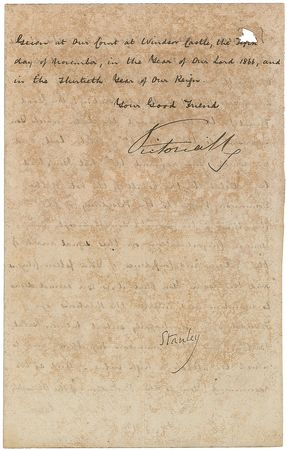 Given at Our Court at Windsor Castle, the
day of November, in the Year of Our Lord 1866, and
in the Thirtieth Year of Our Reign.
Your Good Friend
Victoria R
Stanley